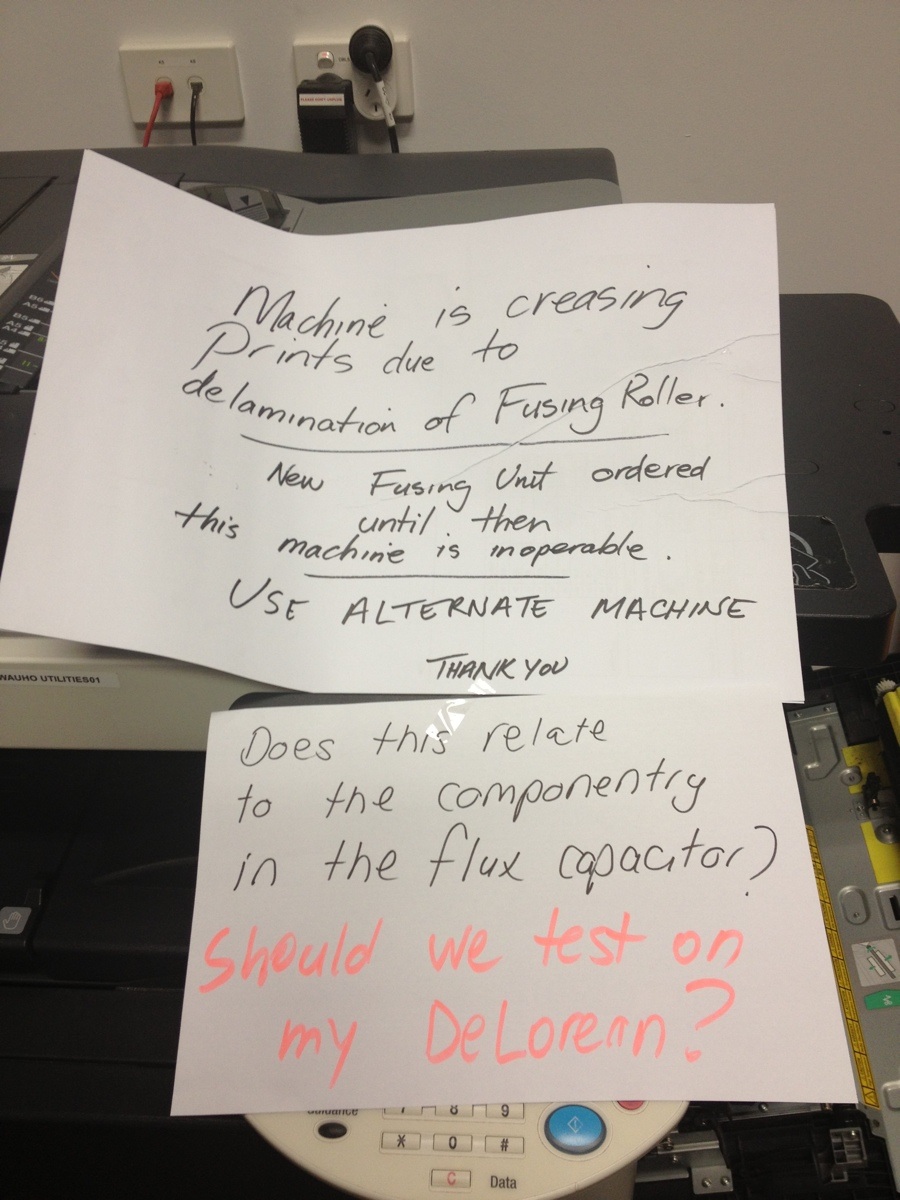 PLEASE DON'T UNPLUG
Machine is creasing
Prints due to
delamination of Fusing Roller.
New Fusing Unit ordered
until then
this machine is inoperable.
USE ALTERNATE MACHINE
THANK YOU
WAUHO UTILITIES01
Does this relate
to the componentry
in the flux capacitor?
Should we test on
my DeLorean?
Guidance
7 8 9
* 0 #
C Data